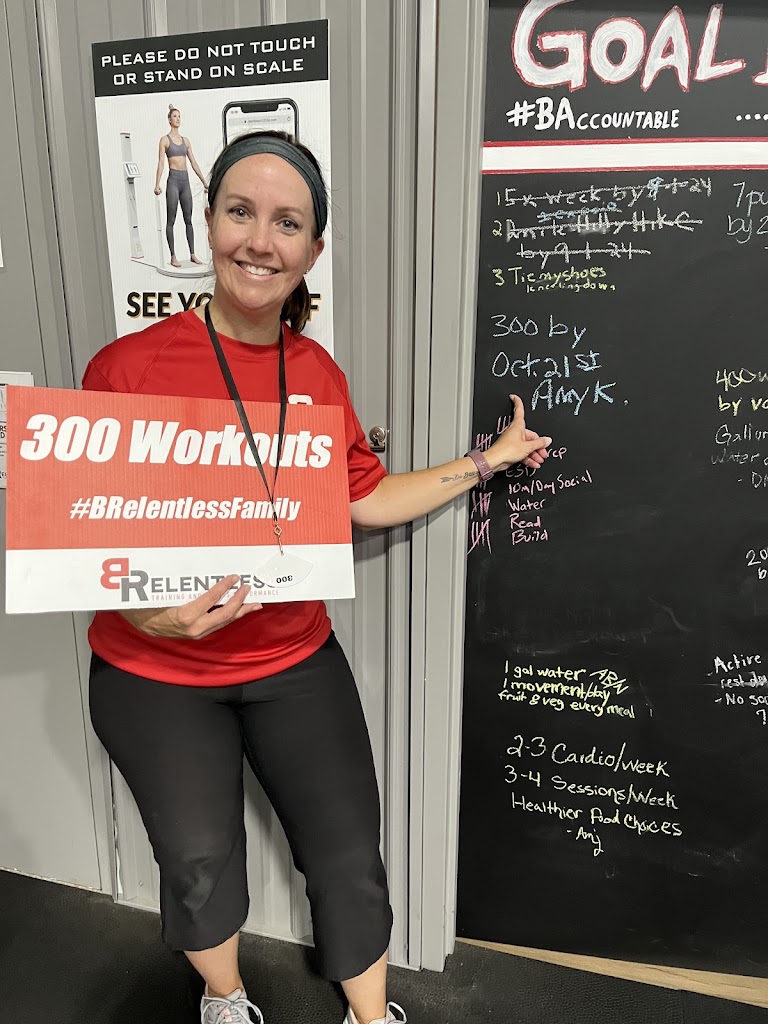 PLEASE DO NOT TOUCH
OR STAND ON SCALE
SEE YO F
300 Workouts
#BRelentlessFamily
BRELENTLESS
TRAINING AND PERFORMANCE
300
GOAL
#BACCOUNTABLE
15x week by 9+24
2 Hilly Hike
by 9+24
3 Tie my shoes
kneeling down
300 by
Oct. 21st
Amy K.
10m/Day Social
Water
Read
Build
1 gal water
1 movement/day
fruit & veg every meal
2-3 Cardio/week
3-4 Sessions/Week
Healthier Food Choices
- Amj
7 pu
by 2
400
by
Gallon
water
20
b
- Active
rest day
- No so
7